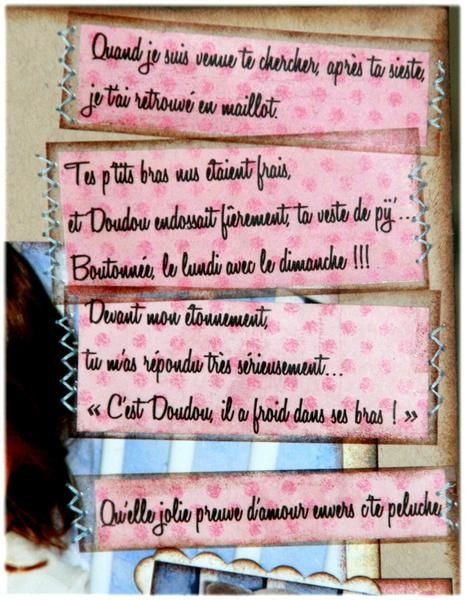 Quand je suis venue te chercher, après ta sieste,
je t'ai retrouvé en maillot.
Tes p'tits bras nus étaient frais,
et Doudou endossait fièrement, ta veste de pÿ'...
Boutonnée, le lundi avec le dimanche !!!
Devant mon étonnement,
tu m'as répondu très sérieusement...
« C'est Doudou, il a froid dans ses bras ! »
Qu'elle jolie preuve d'amour envers c'te peluche